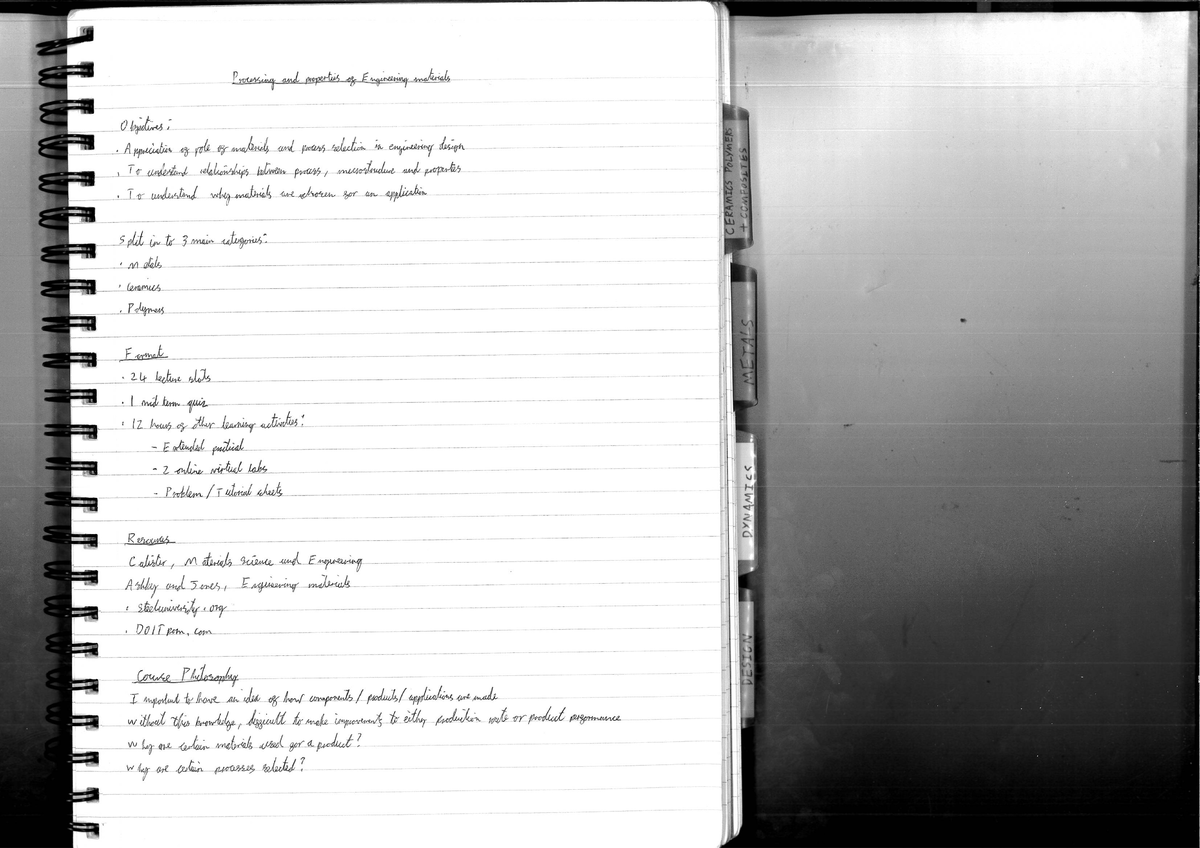 Processing and properties of Engineering materials
Objectives:
· Appreciation of role of materials and process selection in engineering design
· To understand relationships between process, microstructure and properties
· To understand why materials are chosen for an application
Split in to 3 main categories:
· Metals
· Ceramics
· Polymers
Format
· 24 lecture slots
· 1 mid term quiz
· 12 hours of other learning activities:
- Extended practical
- 2 online virtual labs
- Problem / Tutorial sheets
Resources
Calister, Materials Science and Engineering
Ashby and Jones, Engineering materials
· steeluniversity.org
· DOITPOM.com
Course Philosophy
Important to have an idea of how components / products / applications are made
Without this knowledge, difficult to make improvements to either production route or product performance
Why are certain materials used for a product?
Why are certain processes selected?
CERAMICS POLYMERS
+ COMPOSITES
METALS
DYNAMICS
DESIGN